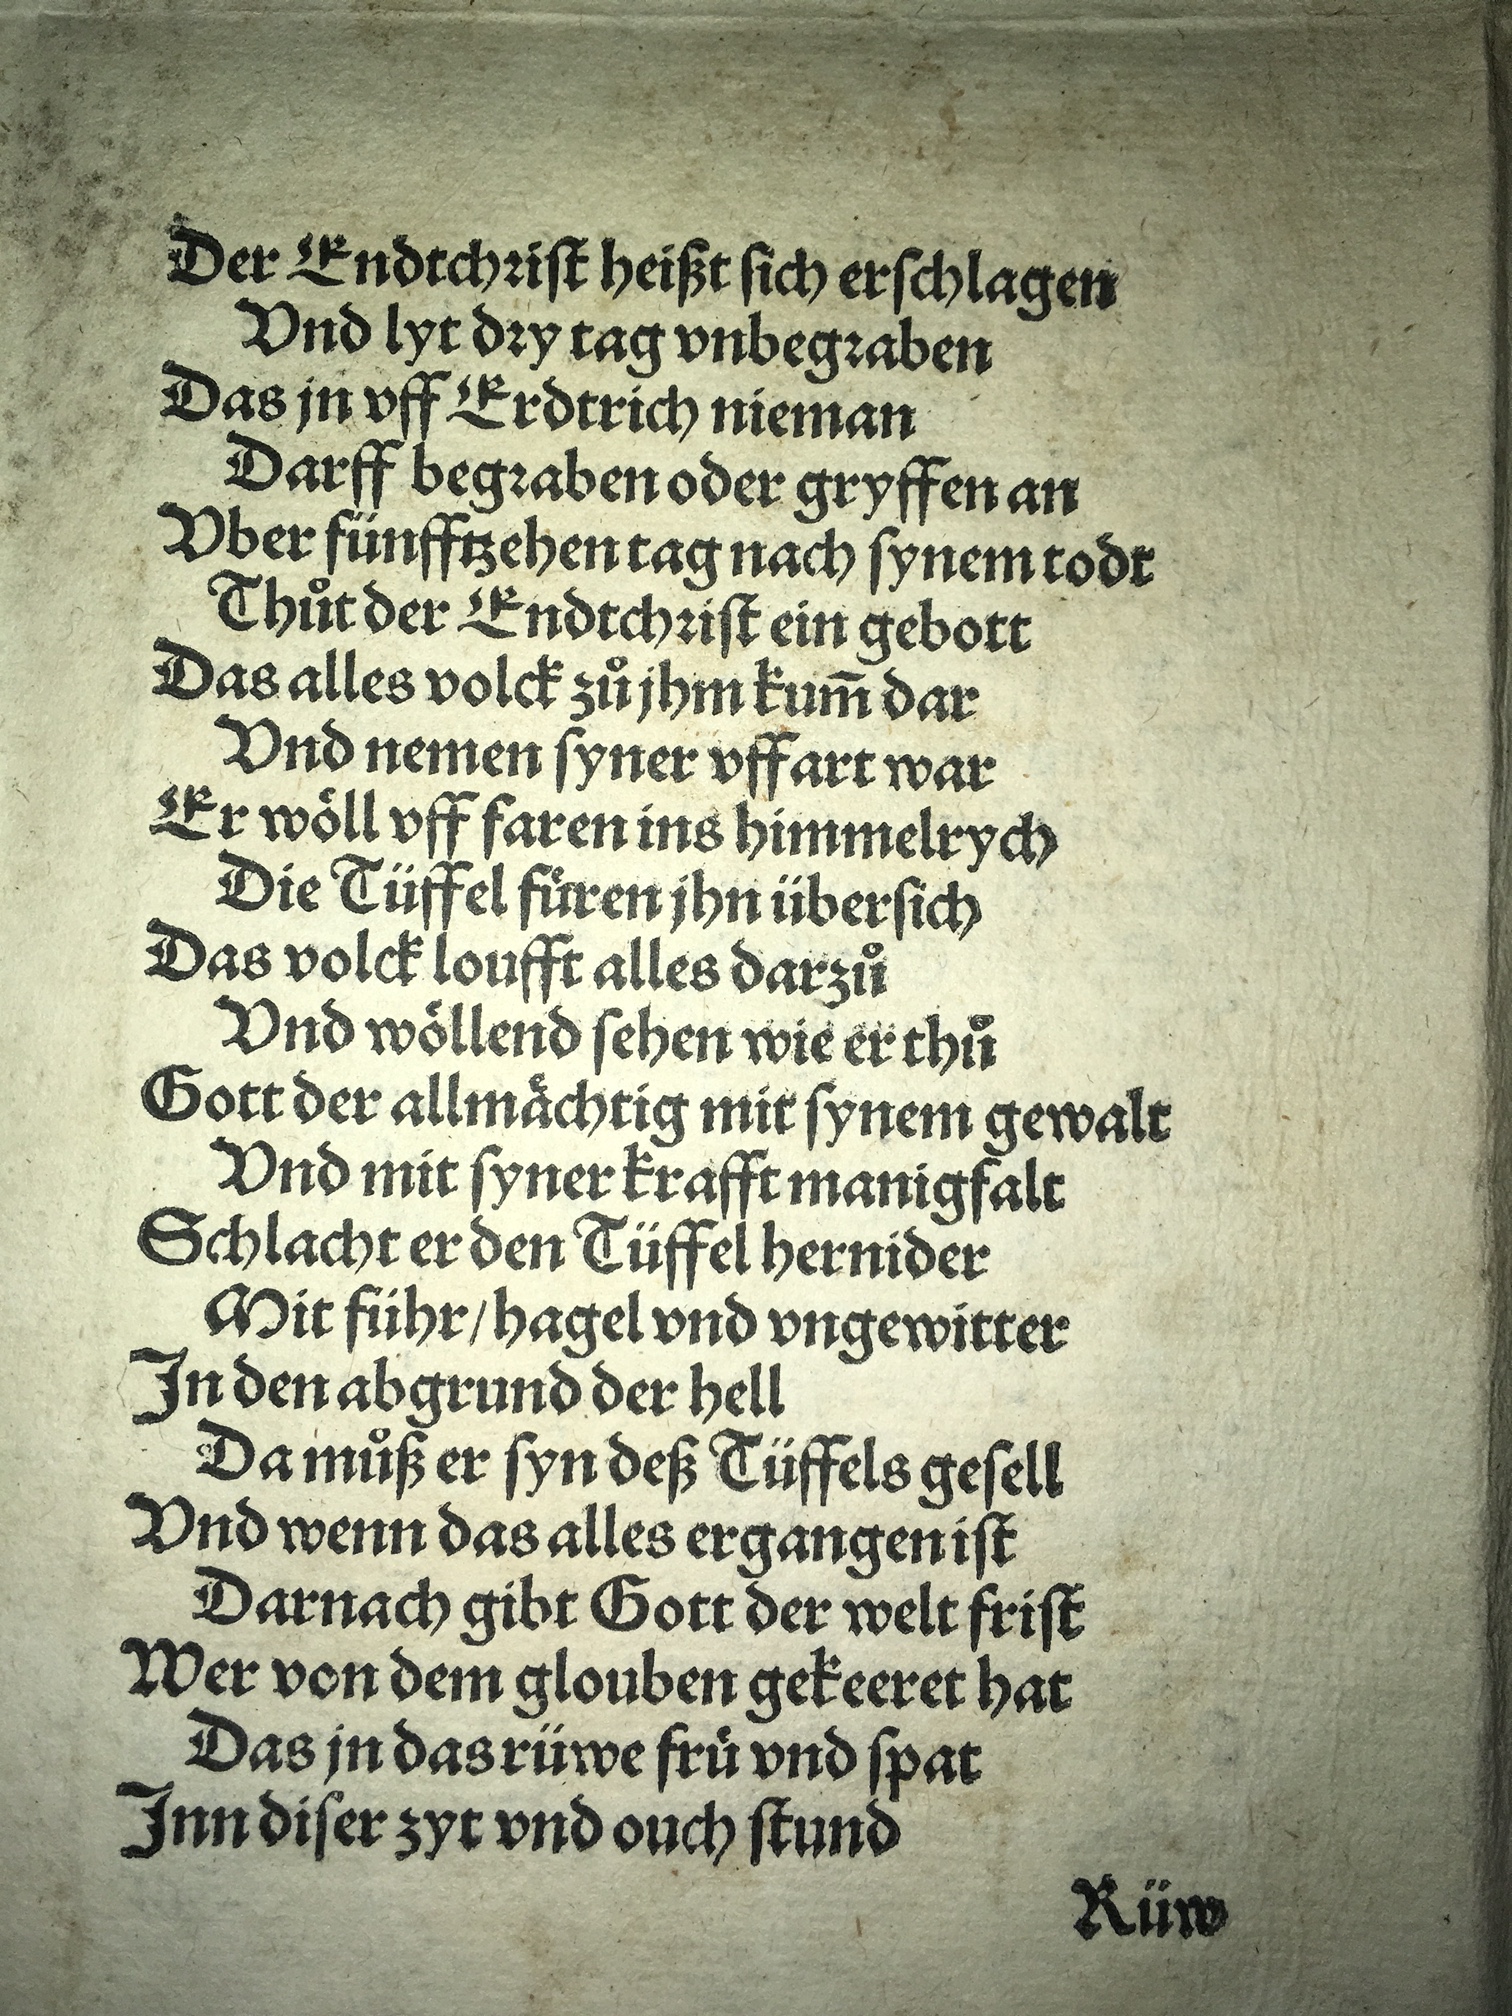 Der Endtchꝛiſt heißt ſich erſchlagen
Vnd lyt dꝛy tag vnbegꝛaben
Das jn vff Erdtrich nieman
Darff begꝛaben oder gryffen an
Vber fünfftzehen tag nach ſynem todt
Thuͦt der Endtchꝛiſt ein gebott
Das alles volck zuͦ jhm kum̃ dar
Vnd nemen ſyner vffart war
Er woͤll vff faren ins himmelrych
Die Tüffel fuͤren jhn überſich
Das volck loufft alles darzuͦ
Vnd woͤllend ſehen wie er thuͦ
Gott der allmaͤchtig mit ſynem gewalt
Vnd mit ſyner krafft manigfalt
Schlacht er den Tüffel hernider
Mit führ/ hagel vnd vngewitter
In den abgrund der hell
Da muͦß er ſyn deß Tüffels geſell
Vnd wenn das alles ergangen iſt
Darnach gibt Gott der welt friſt
Wer von dem glouben gekeeret hat
Das jn das rüwe fruͤ vnd ſpat
Inn diſer zyt vnd ouch ſtund
Rüw